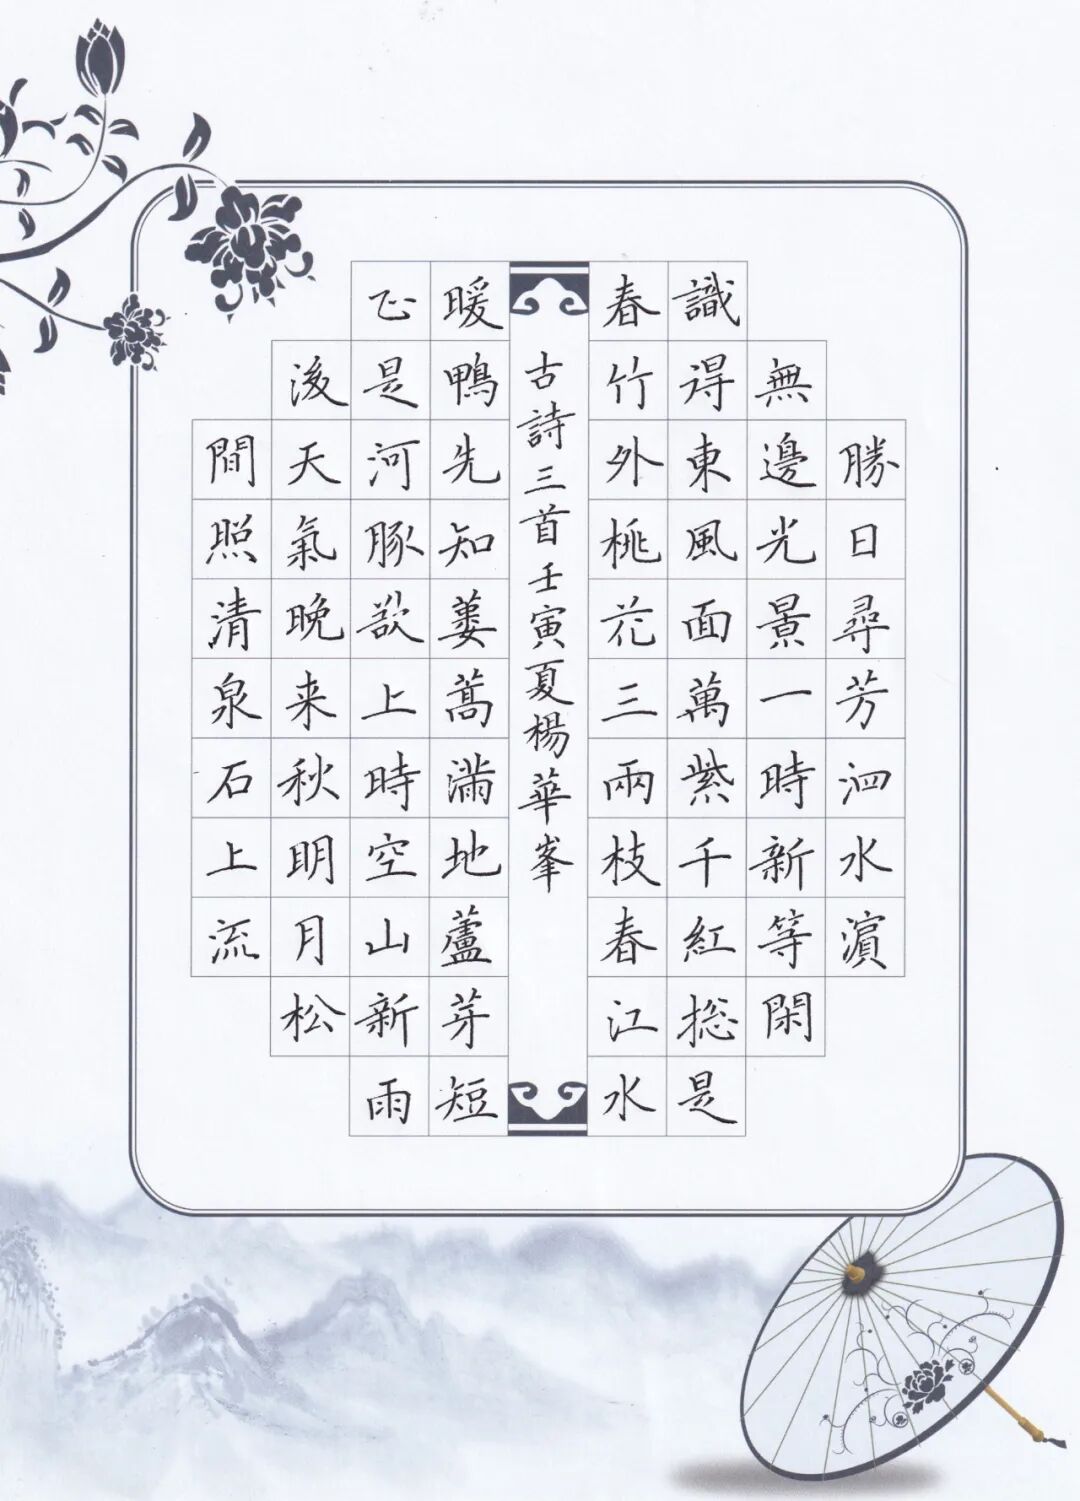 勝日尋芳泗水濵
無邊光景一時新等閑
識得東風面萬紫千紅揔是
春竹外桃花三兩枝春江水
古詩三首壬寅夏楊華峯
暖鴨先知蔞蒿滿地蘆芽短
正是河豚欲上時空山新雨
後天氣晚来秋明月松
間照清泉石上流